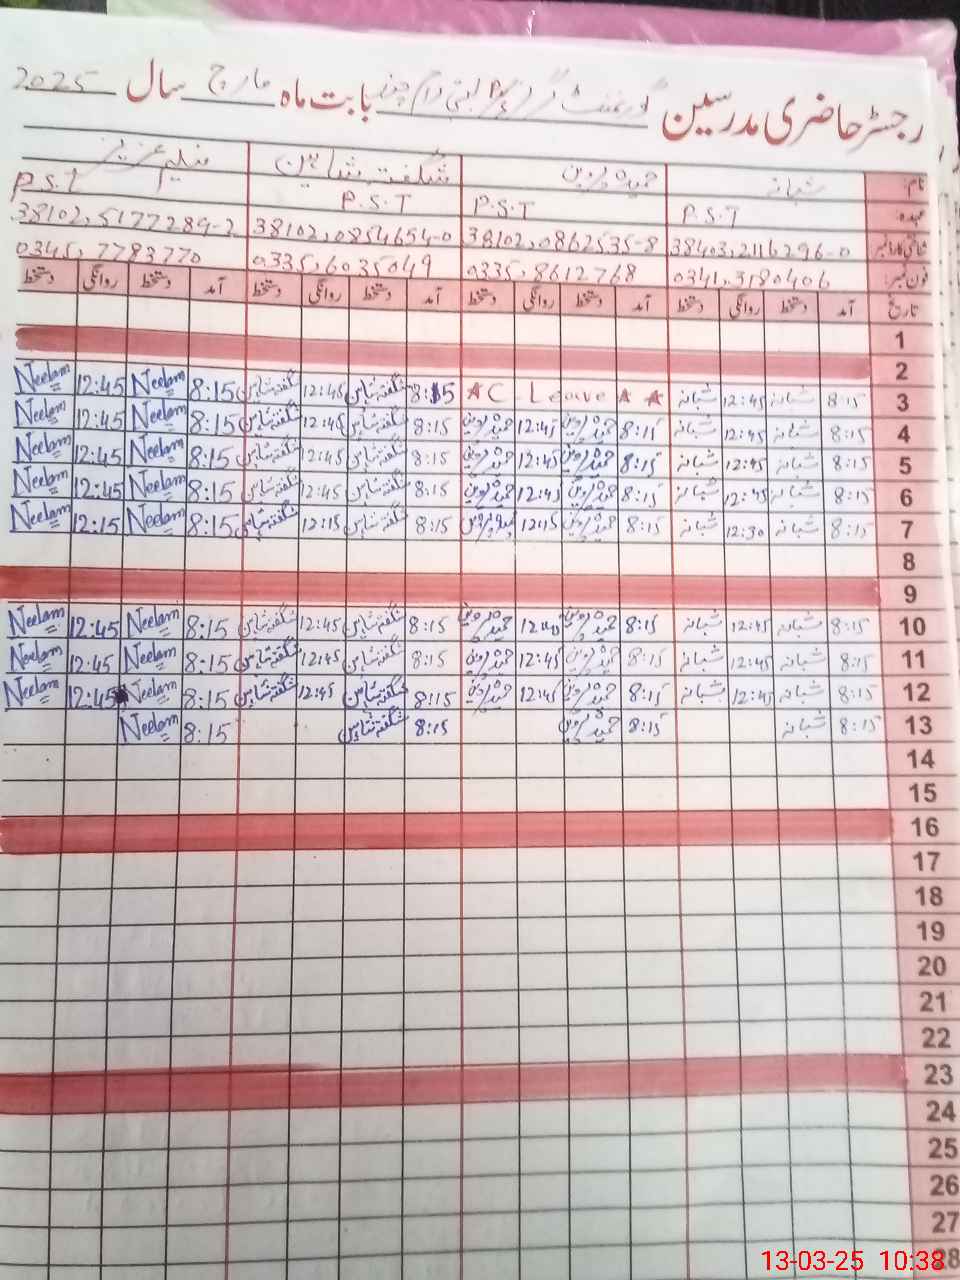 رجسٹر حاضری مدرسین گورنمنٹ گرلز پرائمری سکول بستی رام چند بابت ماہ مارچ سال 2025
نام: شبانہ حمیدہ پروین شگفتہ شاہین نیلم عزیز
عہدہ: P.S.T P.S.T P.S.T P.S.T
شناختی کارڈ نمبر 38403,2116296-0 38102,0862535-8 38102,0854654-0 38102,5177289-2
فون نمبر: 0341,3180406 0335,8612768 0335,6035049 0345,7783770
تاریخ آمد دستخط روانگی دستخط آمد دستخط روانگی دستخط آمد دستخط روانگی دستخط آمد دستخط روانگی دستخط
1
2
3 8:15 شبانہ 12:45 شبانہ AC - Leave 8:15 شگفتہ شاہین 12:45 شگفتہ شاہین 8:15 Neelam 12:45 Neelam
4 8:15 شبانہ 12:45 شبانہ 8:15 حمیدہ پروین 12:45 حمیدہ پروین 8:15 شگفتہ شاہین 12:45 شگفتہ شاہین 8:15 Neelam 12:45 Neelam
5 8:15 شبانہ 12:45 شبانہ 8:15 حمیدہ پروین 12:45 حمیدہ پروین 8:15 شگفتہ شاہین 12:45 شگفتہ شاہین 8:15 Neelam 12:45 Neelam
6 8:15 شبانہ 12:45 شبانہ 8:15 حمیدہ پروین 12:45 حمیدہ پروین 8:15 شگفتہ شاہین 12:45 شگفتہ شاہین 8:15 Neelam 12:45 Neelam
7 8:15 شبانہ 12:30 شبانہ 8:15 حمیدہ پروین 12:15 حمیدہ پروین 8:15 شگفتہ شاہین 12:15 شگفتہ شاہین 8:15 Neelam 12:15 Neelam
8
9
10 8:15 شبانہ 12:45 شبانہ 8:15 حمیدہ پروین 12:45 حمیدہ پروین 8:15 شگفتہ شاہین 12:45 شگفتہ شاہین 8:15 Neelam 12:45 Neelam
11 8:15 شبانہ 12:45 شبانہ 8:15 حمیدہ پروین 12:45 حمیدہ پروین 8:15 شگفتہ شاہین 12:45 شگفتہ شاہین 8:15 Neelam 12:45 Neelam
12 8:15 شبانہ 12:45 شبانہ 8:15 حمیدہ پروین 12:45 حمیدہ پروین 8:15 شگفتہ شاہین 12:45 شگفتہ شاہین 8:15 Neelam 12:45 Neelam
13 8:15 شبانہ 8:15 حمیدہ پروین 8:15 شگفتہ شاہین 8:15 Neelam
14
15
16
17
18
19
20
21
22
23
24
25
26
27
28
13-03-25 10:38